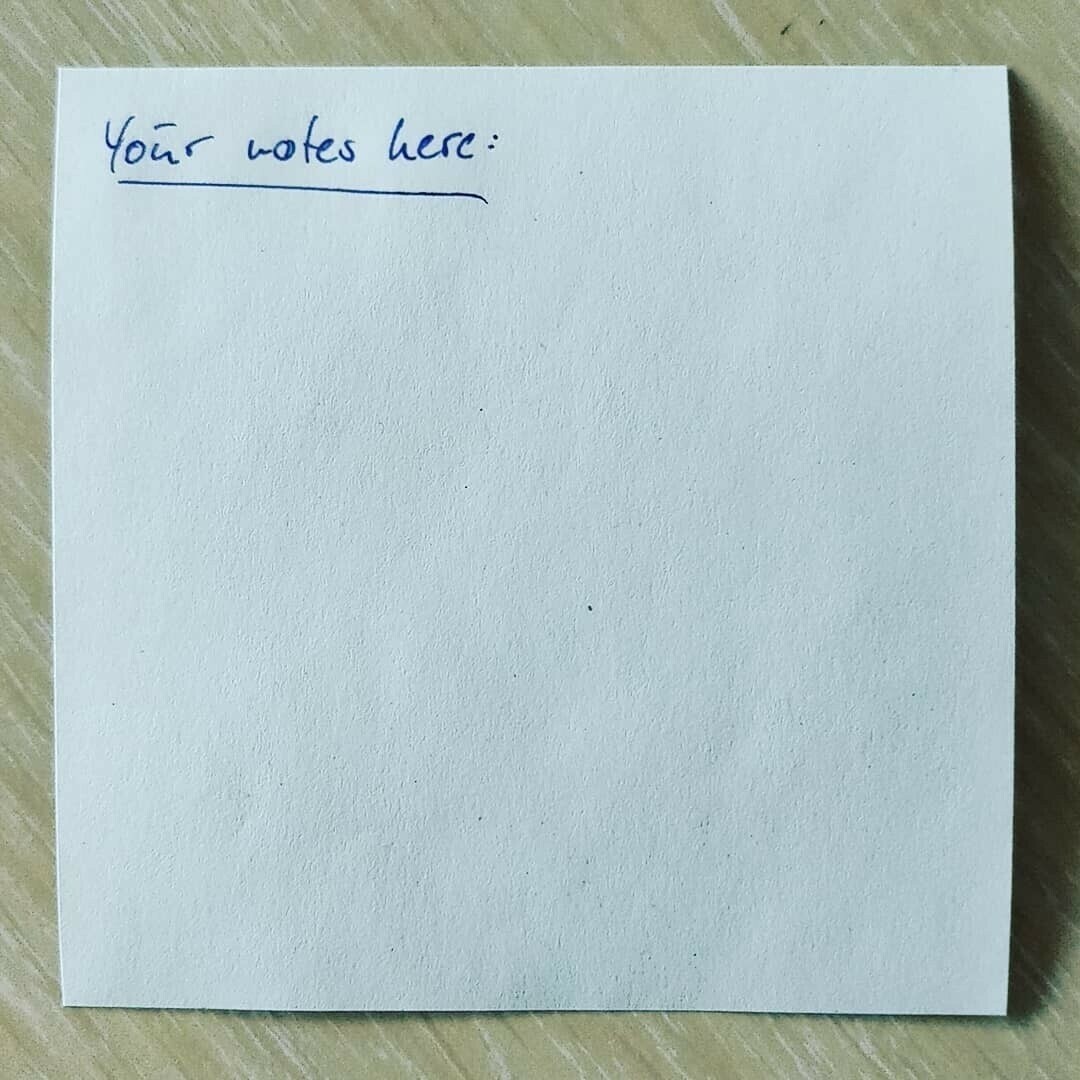 Your notes here: